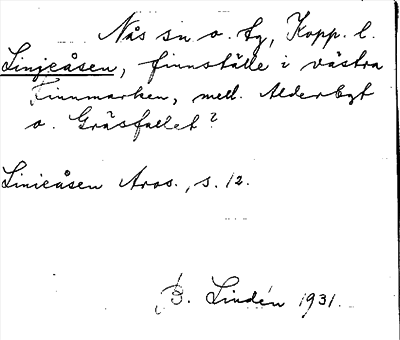 Nås sn o. tg, Kopp. l.
Linjeåsen, finnställe i västra
Finnmarken, mell. Alderbyt
o. Gräsfallet?
Linieåsen Aros., s. 12.
B. Lindén 1931.